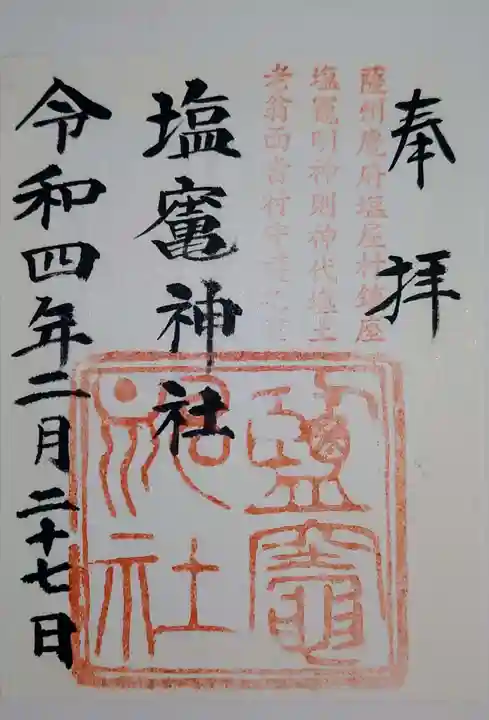 奉拝
薩州麑府塩屋村鎮座
塩竃明神則神代塩土
老翁
塩竃神社
令和四年二月二十七日
鹽竈
神社